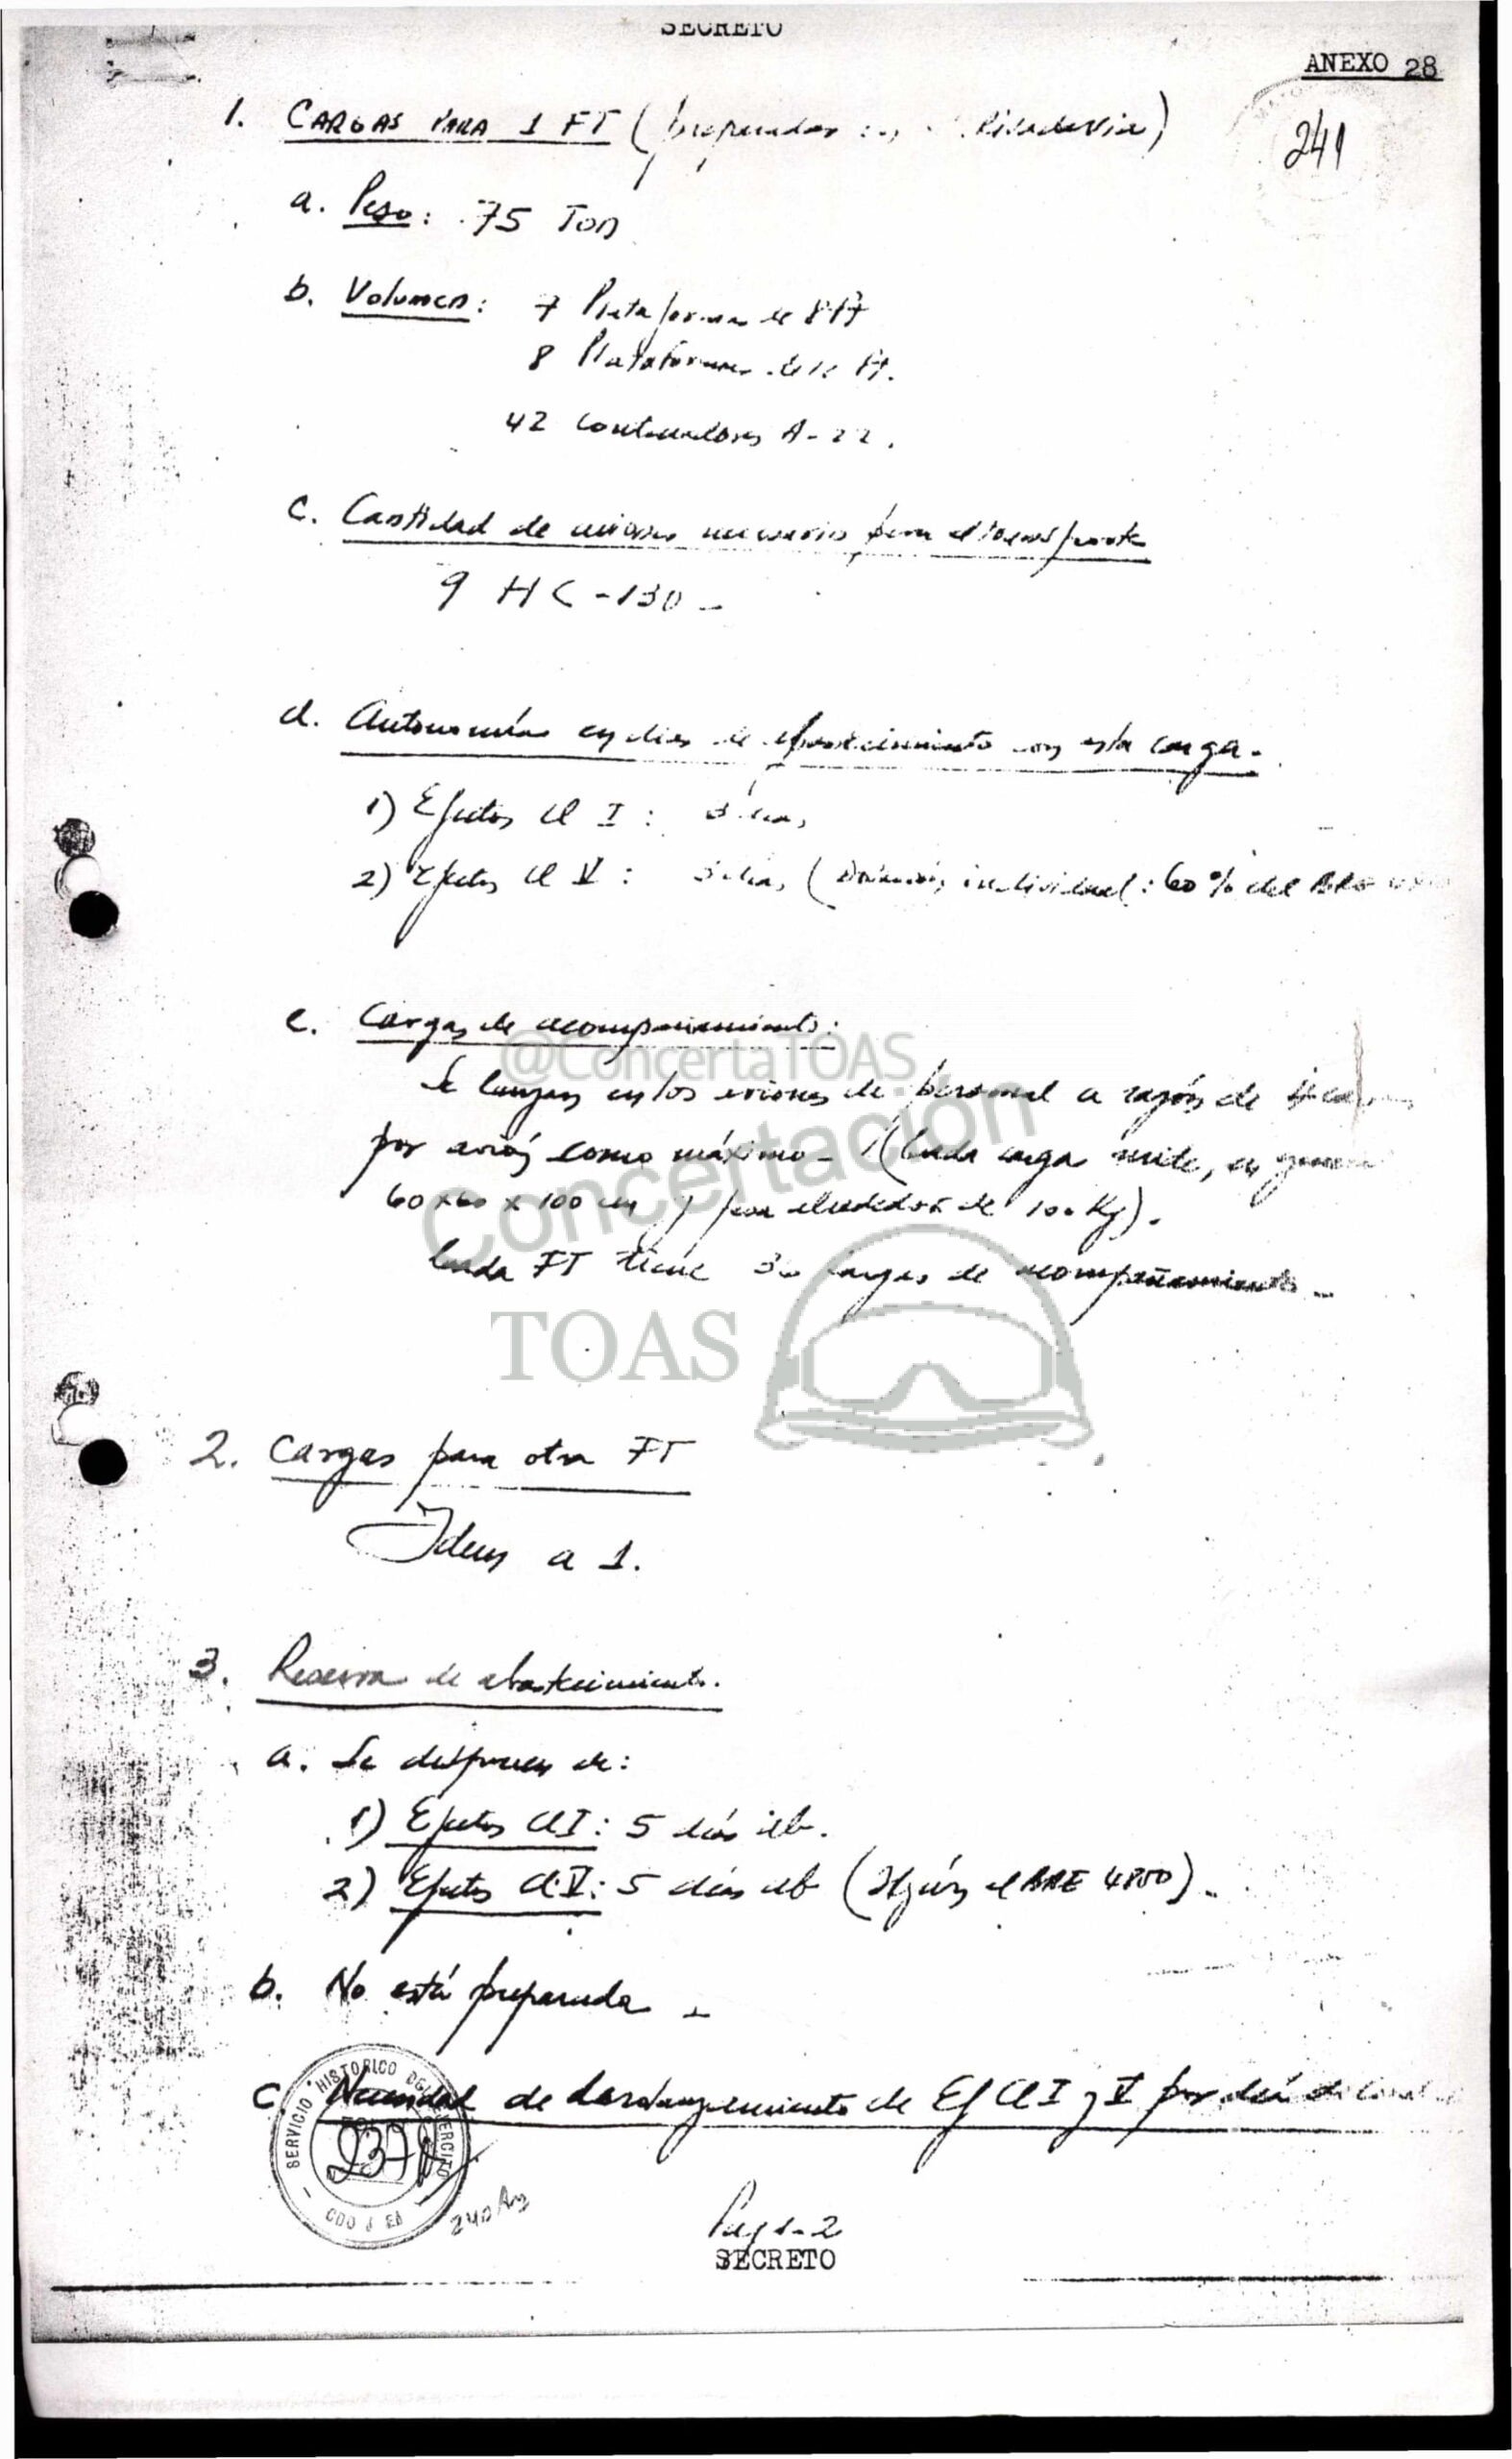 SECRETO
ANEXO 28
241
1. CARGAS PARA 1 FT (preparadas en Rivadavia)
a. Peso: 75 Ton
b. Volumen: 7 Plataformas de 8 Ft
8 Plataformas de 12 Ft.
42 contenedores A-22.
c. Cantidad de aviones necesarios para el transporte
9 HC-130 -
d. Autonomía en días de abastecimiento con esta carga.
1) Efectos Cl I: 3 días
2) Efectos Cl V: 3 días (Dotación individual: 60% del
e. Cargas de acompañamiento:
Se lanzan en los aviones de personal a razón de 4
por avión como máximo - (Cada carga mide, en general
60 x 60 x 100 cm y pesa alrededor de 100 Kg).
Cada FT tiene 30 cargas de acompañamiento -
@ConcertaTOAS
Concertación
TOAS
2. Cargas para otra FT
Idem a 1.
3. Reserva de abastecimiento.
a. Se disponen de:
1) Efectos Cl I: 5 días ab.
2) Efectos Cl V: 5 días ab (según el
b. No está preparada -
c. Necesidad de de Ef Cl I y V por día de
SERVICIO HISTORICO DEL EJERCITO
237
240
Pág 1-2
SECRETO